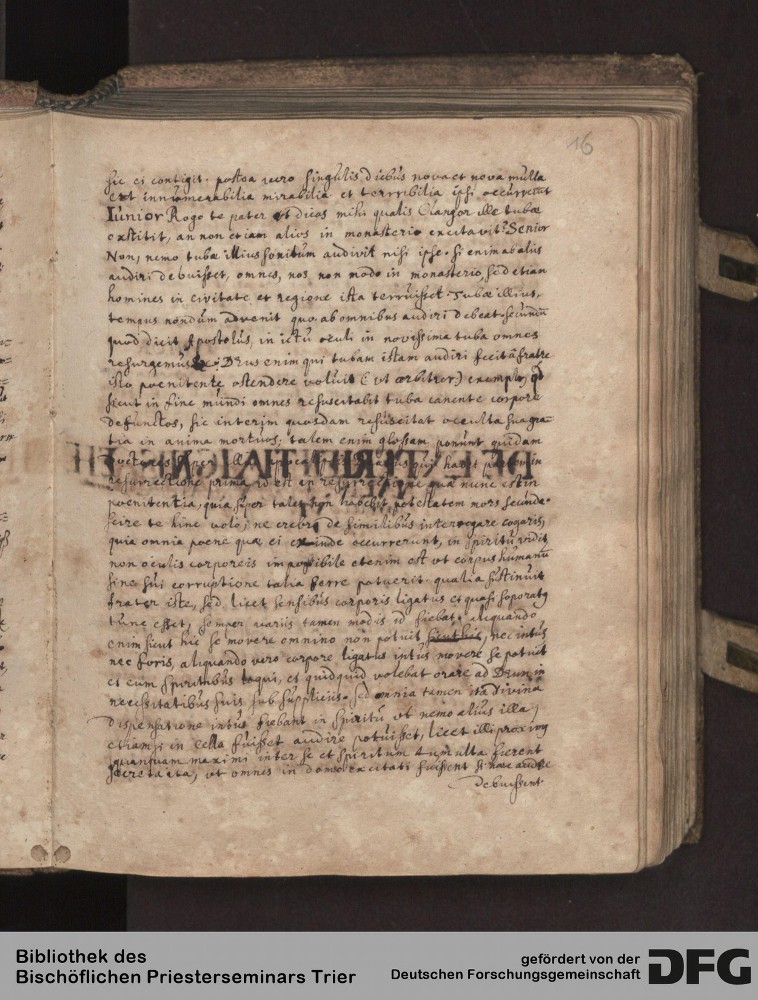 16
sic ei contigit. postea vero singulis diebus nova et nova multa
et innumerabilia mirabilia et terribilia ipsi occurrerunt
Iunior Rogo te pater ut dicas mihi qualis Clangor ille tubæ
extitit, an non etiam alios in monasterio excitavit? Senior
Non, nemo tubæ illius sonitum audivit nisi ipse. si enim ab aliis
audiri debuisset, omnes, nos non modo in monasterio, sed etiam
homines in civitate et regione ista terruisset. Tubæ illius,
tempus nondum advenit quo ab omnibus audiri debeat. secundum
quod dicit Apostolus, in ictu oculi in novissima tuba omnes
resurgemus. Deus enim qui tubam istam audiri fecit a fratre
isto poenitente ostendere voluit (ut arbitror) exemplo, qd
sicut in fine mundi omnes resuscitabit tuba canente corpore
defunctos, sic interim quosdam resuscitat occulta sua gra-
tia in anima mortuos; talem enim glossam ponunt quidam
qui habet partem in
resurrectione prima id est in resurrectione qua nunc est in
poenitentia, quia super tales non habebit potestatem mors secunda.
scire te hinc volo; ne crebro de similibus interrogare cogaris,
quia omnia poene quæ ei exinde occurrerunt, in spiritu vidit
non oculis corporeis impossibile etenim est ut corpus humanū
sine sui corruptione talia ferre potuerit. qualia sustinuit
frater iste, sed, licet sensibus corporis ligatus et quasi soporatus
tunc esset, semper variis tamen modis id fiebat. aliquando
enim sicut hic se movere omnino non potuit, nec intus
nec foris, aliquando vero corpore ligatus intus movere se potuit
et cum spiritibus loqui, et quidquid volebat orare ad Deum in
necessitatibus suis sub suppliciis. sed omnia tamen ita divina
dispensatione intus fiebant in spiritu ut nemo alius illa,
etiamsi in cella fuisset audire potuisset, licet illi proximus
quanquam maximi inter se et spiritum tumulta fierent
ut omnes in domo excitati fuissent si hæc audire
debuissent.
Bibliothek des
Bischöflichen Priesterseminars Trier
gefördert von der
Deutschen Forschungsgemeinschaft
DFG